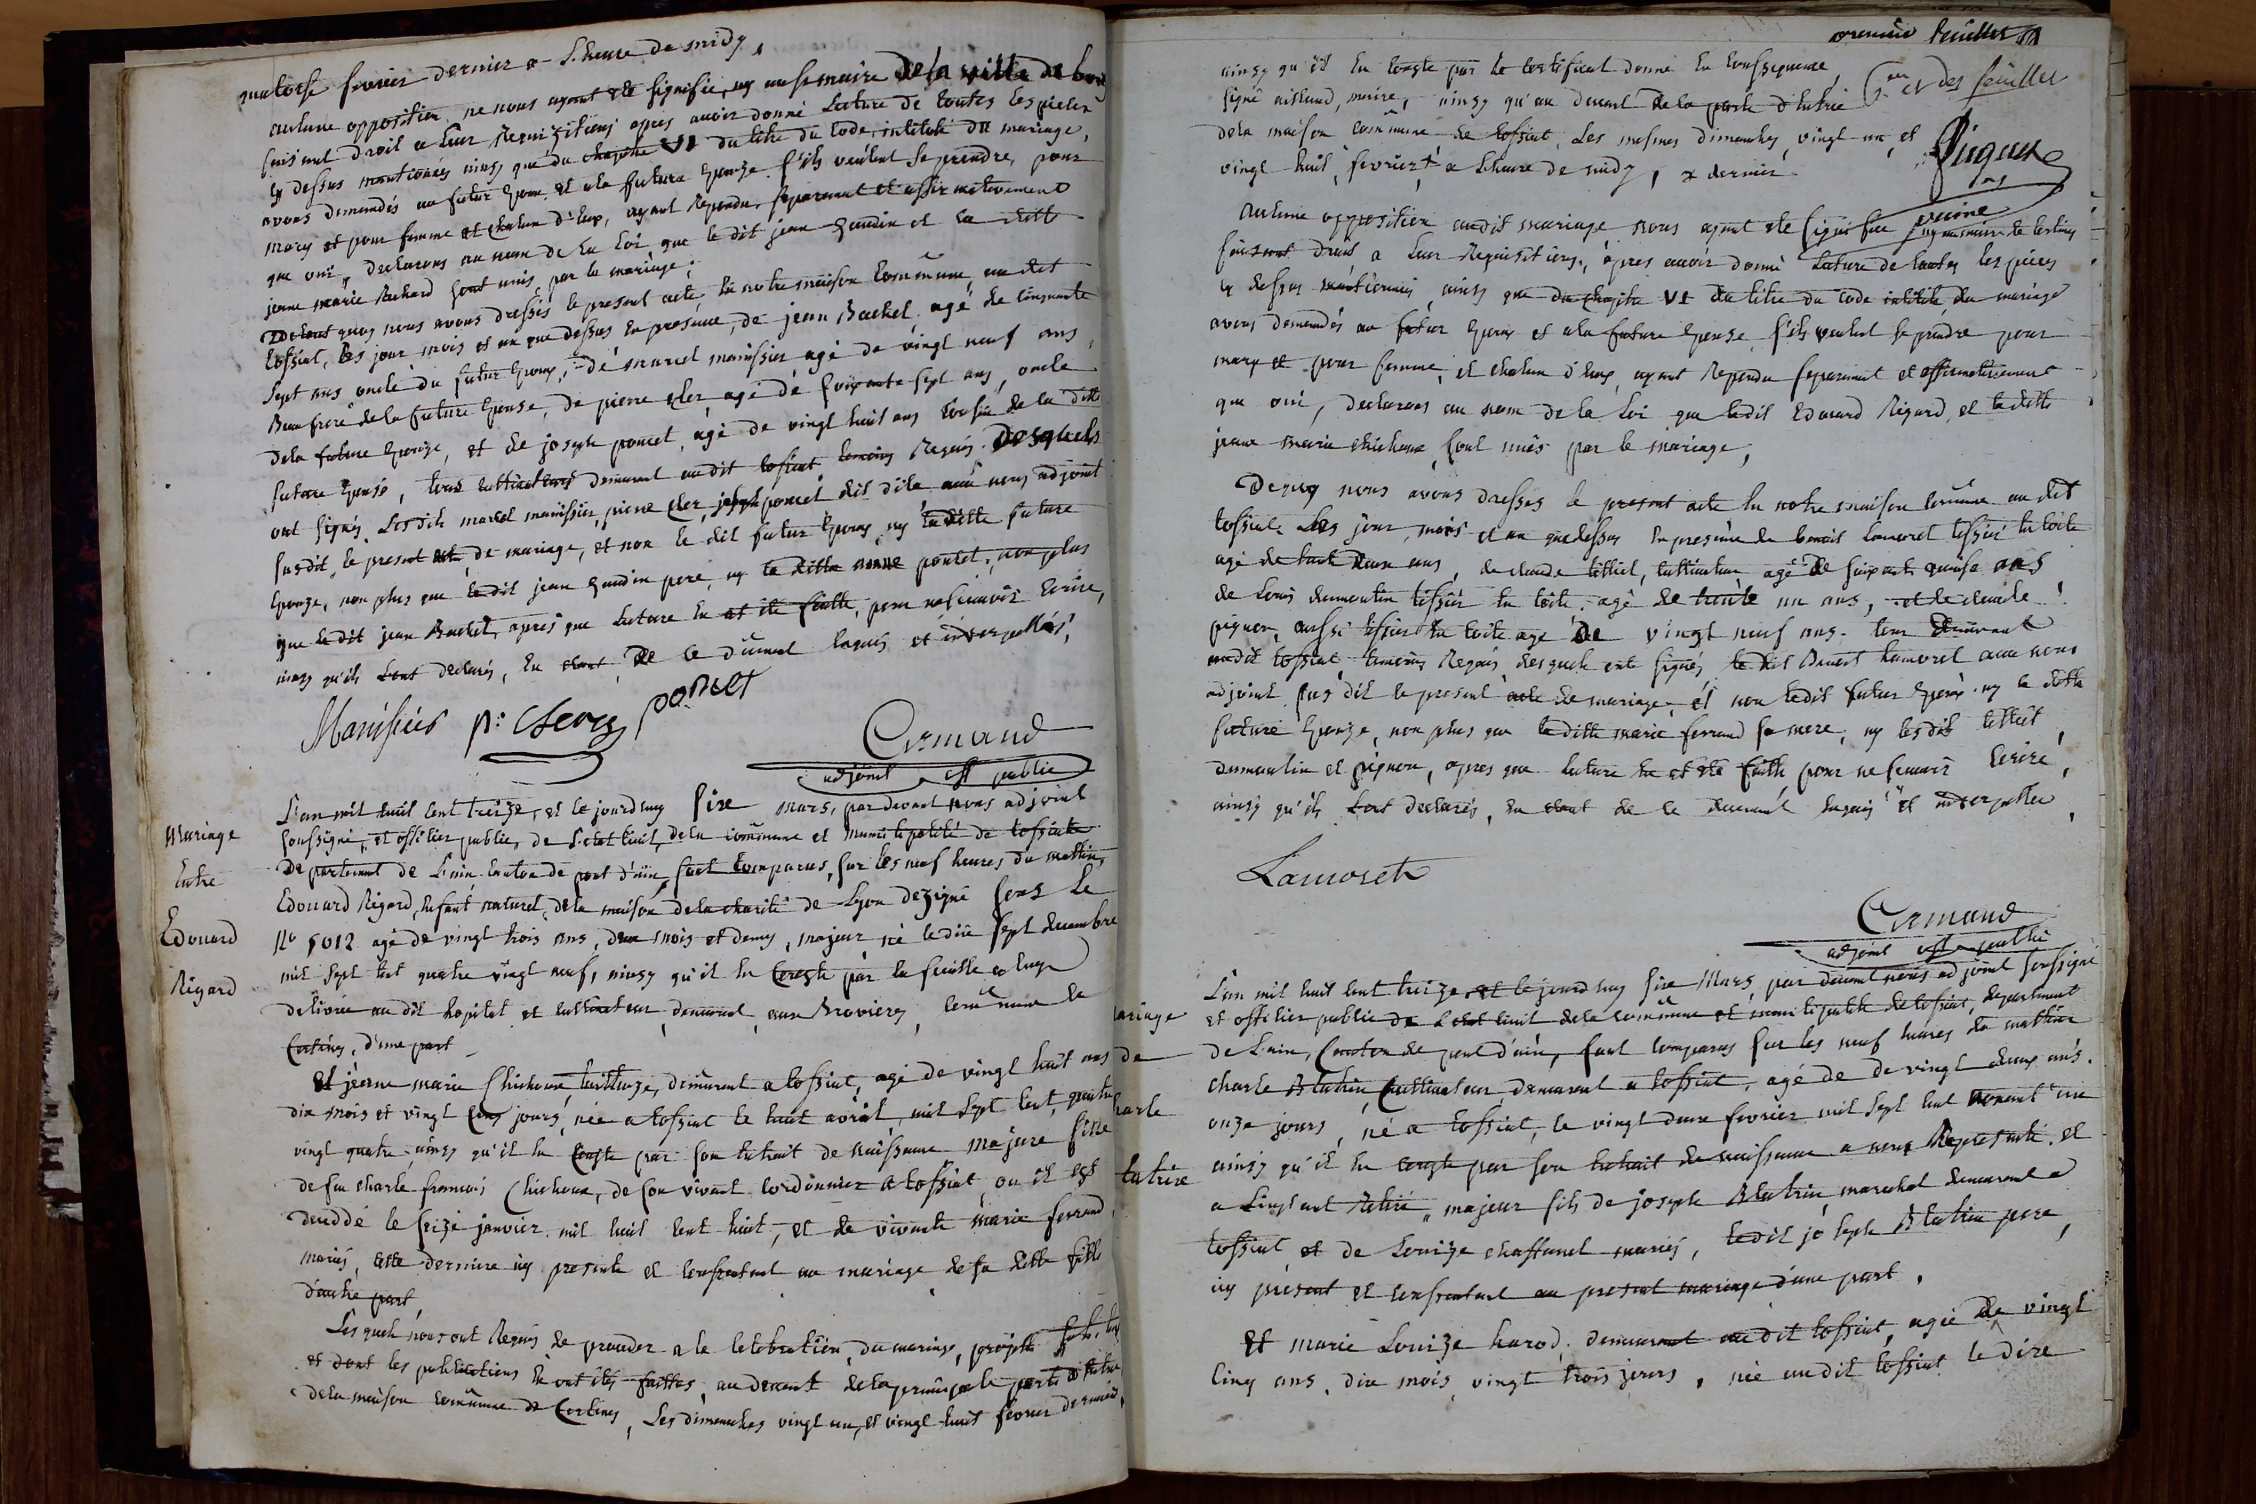 quatorse fevrier dernier a L'heure de midy,
aucune opposition ne nous ayant eté signifié, ny au sr maire de la ville de bour
faisant droit a leur Requizitions apres avoir donné Lecture de toutes les pieces
cy dessus mentionées ainsy que du chapitre VI du titre du code intitulé du mariage,
avons demandés au futur Epoux et a la future Epouze s'ils veulent se prendre, pour
mary et pour femme et chacun d'eux, ayant Repondu, separement et affirmativement
que oui, declarons au nom de la loi que le dit jean gaudin et la ditte
jeanne marie Richard sont unis par le mariage;
De tout quoy nous avons dressés le present acte, en notre maison commune, au dit
tossiat, les jour mois et an que dessus En presence, de jean Bachel agé de cinquante
sept ans oncle du futur Epoux, de marcel manissier agé de vingt neuf ans,
Beau frere de la future Epouse, de pierre cler, agé de soixante sept ans, oncle
de la future Epouze, et de joseph poncet, agé de vingt huit ans cousin de la ditte
future Epouse, tous cultivateurs demeurant audit tossiat temoins Requis. Desquels
ont signés Les dits marcel manissier, pierre cler, joseph poncet avec nous adjoint
susdit, le present acte de mariage, et non le dit futur Epoux ny la ditte future
Epouze, non plus que le dit jean gaudin pere, ny la ditte poncet, non plus
que le dit jean Bachel, apres que Lecture En et été faitte, pour ne scavoir Ecrire,
ainsy qu'ils L'ont declarés, En etant de ce duement Enquis et interpellés,
Manissier p: Clerc poncet
Armand
adjoint off public
Mariage
Entre
Edouard
Rigard
L'an mil huit cent treize, et le jourd'huy six mars, par devant nous adjoint
soussigné, et officier public, de L'etat civil, de la commune et municipalité de tossiat
Departement de L'ain canton de pont d'ain, sont comparus, sur les neuf heures du mattin,
Edouard Rigard, Enfant naturel, de la maison de la charité de Lyon dezigné sous le
No 5012 agé de vingt trois ans, deux mois et demy, majeur né le dix sept decembre
mil sept cent quatre vingt neuf, ainsy qu'il En Conste par la feuille
delivrée au dit hopital et cultivateur, demeurant, aux Rovieres, commune de
Certines, d'une part
Et jeanne marie Chichoux, cultivatrice, demeurant a tossiat, agé de vingt huit ans
dix mois et vingt cinq jours, née a tossiat le huit avril, mil sept cent, quatre
vingt quatre ainsy qu'il En Conste par son Extrait de naissance majeure fille
de feu charle francois Chichoux, de son vivant cordonnier a tossiat, ou il est
decedé le seize janvier mil huit cent huit, et de vivante marie ferrand,
mariés, cette derniere icy presente et consentant au mariage de sa ditte fille
d'autre part
Les quels nous ont Requis de proceder a la celebration, du mariage, projetté
et dont les publications En ont étés faittes, au devant de la principale porte d'Entrée
de la maison commune de Certines, Les dimanches vingt un, et vingt huit fevrier dernier,
premier feuillet
ainsy qu'il En Conste par le certificat donné En Consequence,
signé maire, ainsy qu'au devant de la porte d'Entrée
de la maison commune de tossiat, Les mesmes dimanches, vingt un et
vingt huit, fevrier a L'heure de midy, x dernier
et des feuillet
aucune opposition audit mariage nous ayant eté signifiée ny au maire de Certines
faisant droit a Leur Requisitions, apres avoir donné Lecture de toutes les pieces
cy dessus mentionnés, ainsy que du chapitre VI du titre du code intitulé du mariage
avons demandés au futur Epoux et a la future Epouse s'ils veulent se prendre pour
mary et pour femme, et chacun d'eux, ayant Repondu separement et affirmativement
que oui, declarons au nom de la Loi que ledit Edouard Rigard, et la ditte
jeanne marie chichoux, sont unis par le mariage,
De quoy nous avons dressés le present acte En notre maison commune au dit
tossiat. Les jour, mois et an que dessus En presence de benoit Lamoret tissier En toile
agé de trent deux ans, de claude cultivateur agé de soixante quinse ans
de Louis dumoulin tissier En toile, agé de trente un ans, et de claude
pignon, aussi tissier En toile agé de vingt neuf ans. tous demeurant
audit tossiat temoins Requis desquels ont signés le dit Benoit Lamoret avec nous
adjoint sus dit le present acte de mariage, et non ledit futur Epoux ny la ditte
future Epouze, non plus que la ditte marie ferrand sa mere, ny les dits
dumoulin et pignon, apres que Lecture En et eté faitte pour ne scavoir Ecrire,
ainsy qu'ils L'ont declarés, En etant de ce duement Enquis et interpellés,
Lamoret
Armand
adjoint off public
ariage
de
harle
latrix
L'an mil huit cent treize et le jourd'huy six Mars, par devant nous adjoint soussigné
et officier public de L'etat civil de la commune et municipalité de tossiat, departement
de L'ain, Canton de pont d'ain, sont comparus sur les neuf heures du mattin
charle Blatrix, Cultivateur, demeurant a tossiat, agé de de vingt deux ans.
onze jours, né a tossiat, le vingt deux fevrier mil sept cent nonant un
ainsy qu'il En Conste par son Extrait de naissance a nous Representé et
a L'instant Retiré, majeur fils de joseph Blatrix, marechal demeurant a
tossiat et de Louize chaffanel mariés, ledit joseph Blatrix pere,
icy présent et consentant au present mariage d'une part,
Et marie Louize harod, demeurant au dit tossiat, agée de vingt
cinq ans, dix mois, vingt trois jours, née audit tossiat le dixe